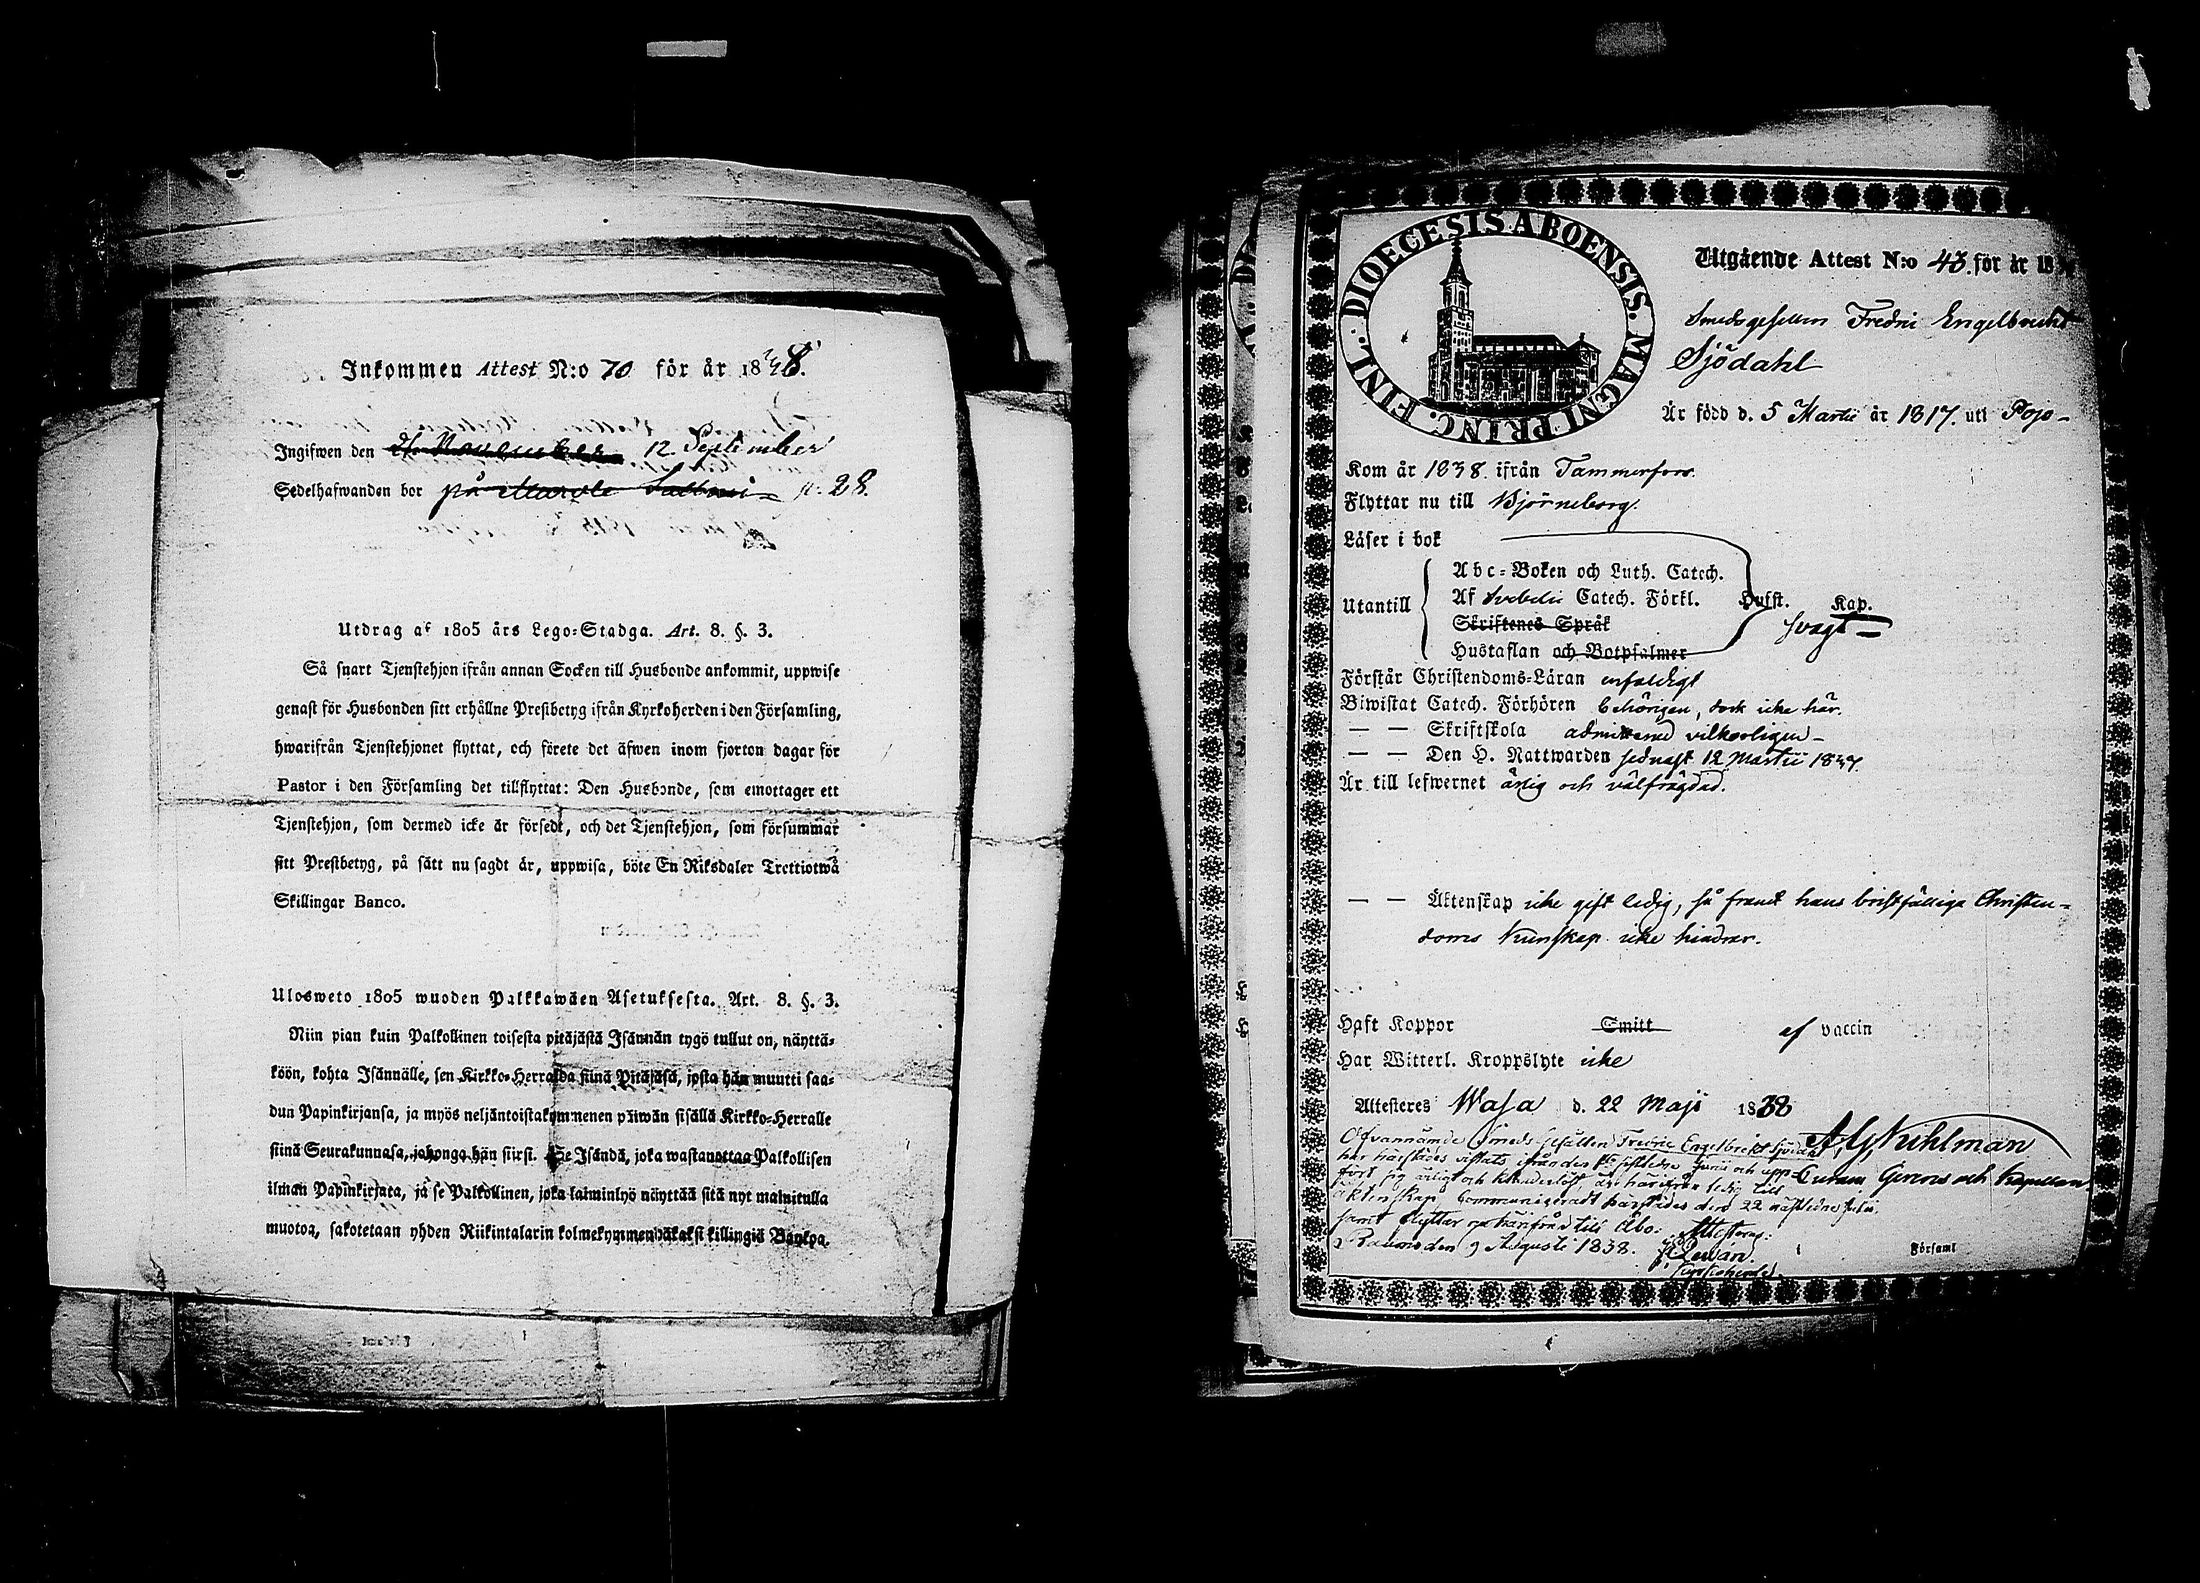 Inkommen Attest N:o 70 för år 1838.
Ingifwen den 12 September
Sedelhafwanden bor på 28.
Utdrag af 1805 års Lego-Stadga. Art. 8. §. 3.
Så snart Tjenstehjon ifrån annan Socken till Husbonde ankommit, uppwise
genast för Husbonden sitt erhållne Prestbetyg ifrån Kyrkoherden i den Församling,
hwarifrån Tjenstehjonet flyttat, och förete det äfwen inom fjorton dagar för
Pastor i den Församling det tillflyttat: Den Husbonde, som emottager ett
Tjenstehjon, som dermed icke är försedt, och det Tjenstehjon, som försummar
sitt Prestbetyg, på sätt nu sagdt är, uppwisa, böte En Riksdaler Trettiotwå
Skillingar Banco.
Ulosweto 1805 wuoden Palkkawäen Asetuksesta. Art. 8. §. 3.
Niin pian kuin Palkollinen toisesta pitäjästä Isännän tygö tullut on, näyttä-
köön, kohta Isännälle, sen Kirkko-Herralda siinä Pitäjäsä, josta hän muutti saa-
dun Papinkirjansa, ja myös neljäntoistakymmenen päiwän sisällä Kirkko-Herralle
siinä Seurakunnasa, johonga hän siirsi. Se Isändä, joka wastanottaa Palkollisen
ilman Papinkirjata, ja se Palkollinen, joka laiminlyö näyttää sitä nyt mainitulla
muotoa, sakotetaan yhden Riikintalarin kolmekymmendäkaksi killingiä Bankoa.
DIOECESIS ABOENSIS. MAGNI PRINC. FINL.
Utgående Attest N:o 43. för år 18
Smedsgesellen Fredric Engelbrecht
Sjödahl
Är född d. 5 Martii år 1817. uti Pojo-
Kom år 1838. ifrån Tammerfors.
Flyttar nu till Björneborg.
Läser i bok
Abc-Boken och Luth. Catech.
Utantill Af Svebelii Catech. Förkl. Hufst. Kap.
Skriftenes Språk svagt
Hustaflan och Botpsalmer
Förstår Christendoms-Läran enfaldigt
Biwistat Catech. Förhören behörigen, dock icke här.
— — Skriftskola admitterad vilkorligen
— — Den H. Nattwarden sednast 12 Martii 1837.
Är till lefwernet ärlig och välfrägdad.
— — Äktenskap icke gift ledig, så framt hans bristfälliga Christen-
doms kunskap icke hindrar.
Haft Koppor Smitt af vaccin
Har Witterl. Kroppslyte icke
Attesteres Wasa d. 22 Maji 1838
A. G. Kuhlman
Ofvannämde Smeds Gesällen Fredric Engelbrekt Sjödahl
har härstädes vistats ifrån den sistledne Junii och upp-
Curam Gerens och Kapellan
fört sig ärligt och klanderlöst, är härifrån ledig till
äktenskap, Communiceradt härstädes den 22 nästledne Julii,
samt flyttar nu härifrån till Åbo: Attesterag:
Raumo den 9 Augusti 1838.
Kyrkoherde.
Församl